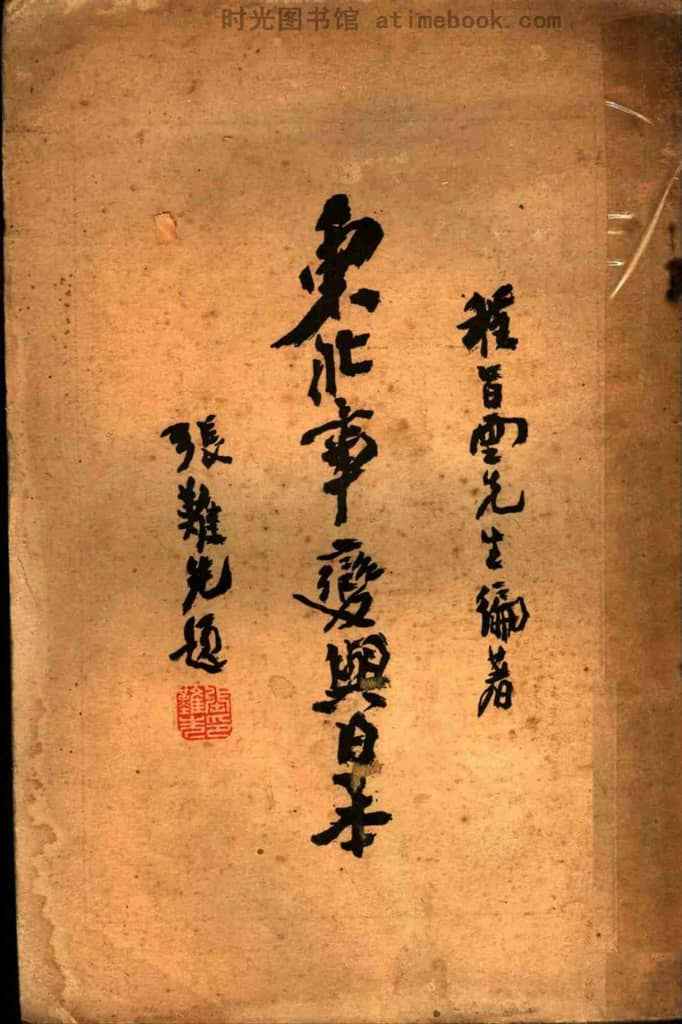 时光图书馆 atimebook.com
程旨雲先生編著
東北事變與日本
張難先題
張難先印